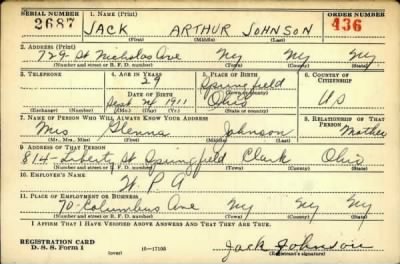 SERIAL NUMBER 1. NAME (Print) ORDER NUMBER
2687 JACK ARTHUR JOHNSON 436
(First) (Middle) (Last)
2. ADDRESS (Print)
729 St Nicholas Ave NY NY NY
(Number and street or R. F. D. number) (Town) (County) (State)
3. TELEPHONE 4. AGE IN YEARS 5. PLACE OF BIRTH 6. COUNTRY OF CITIZENSHIP
29 Springfield
DATE OF BIRTH (Town or county)
Sept 24 1911 Ohio US
(Exchange) (Number) (Mo.) (Day) (Yr.) (State or country)
7. NAME OF PERSON WHO WILL ALWAYS KNOW YOUR ADDRESS 8. RELATIONSHIP OF THAT PERSON
Mrs Glenna Johnson Mother
(Mr., Mrs., Miss) (First) (Middle) (Last)
9. ADDRESS OF THAT PERSON
814- Liberty St Springfield Clark Ohio
(Number and street or R. F. D. number) (Town) (County) (State)
10. EMPLOYER'S NAME
W. P A
11. PLACE OF EMPLOYMENT OR BUSINESS
70- Columbus Ave NY NY
(Number and street or R. F. D. number) (Town) (County) (State)
I AFFIRM THAT I HAVE VERIFIED ABOVE ANSWERS AND THAT THEY ARE TRUE.
REGISTRATION CARD
D. S. S. Form 1 (over) 16—17105 Jack Johnson
(Registrant's signature)